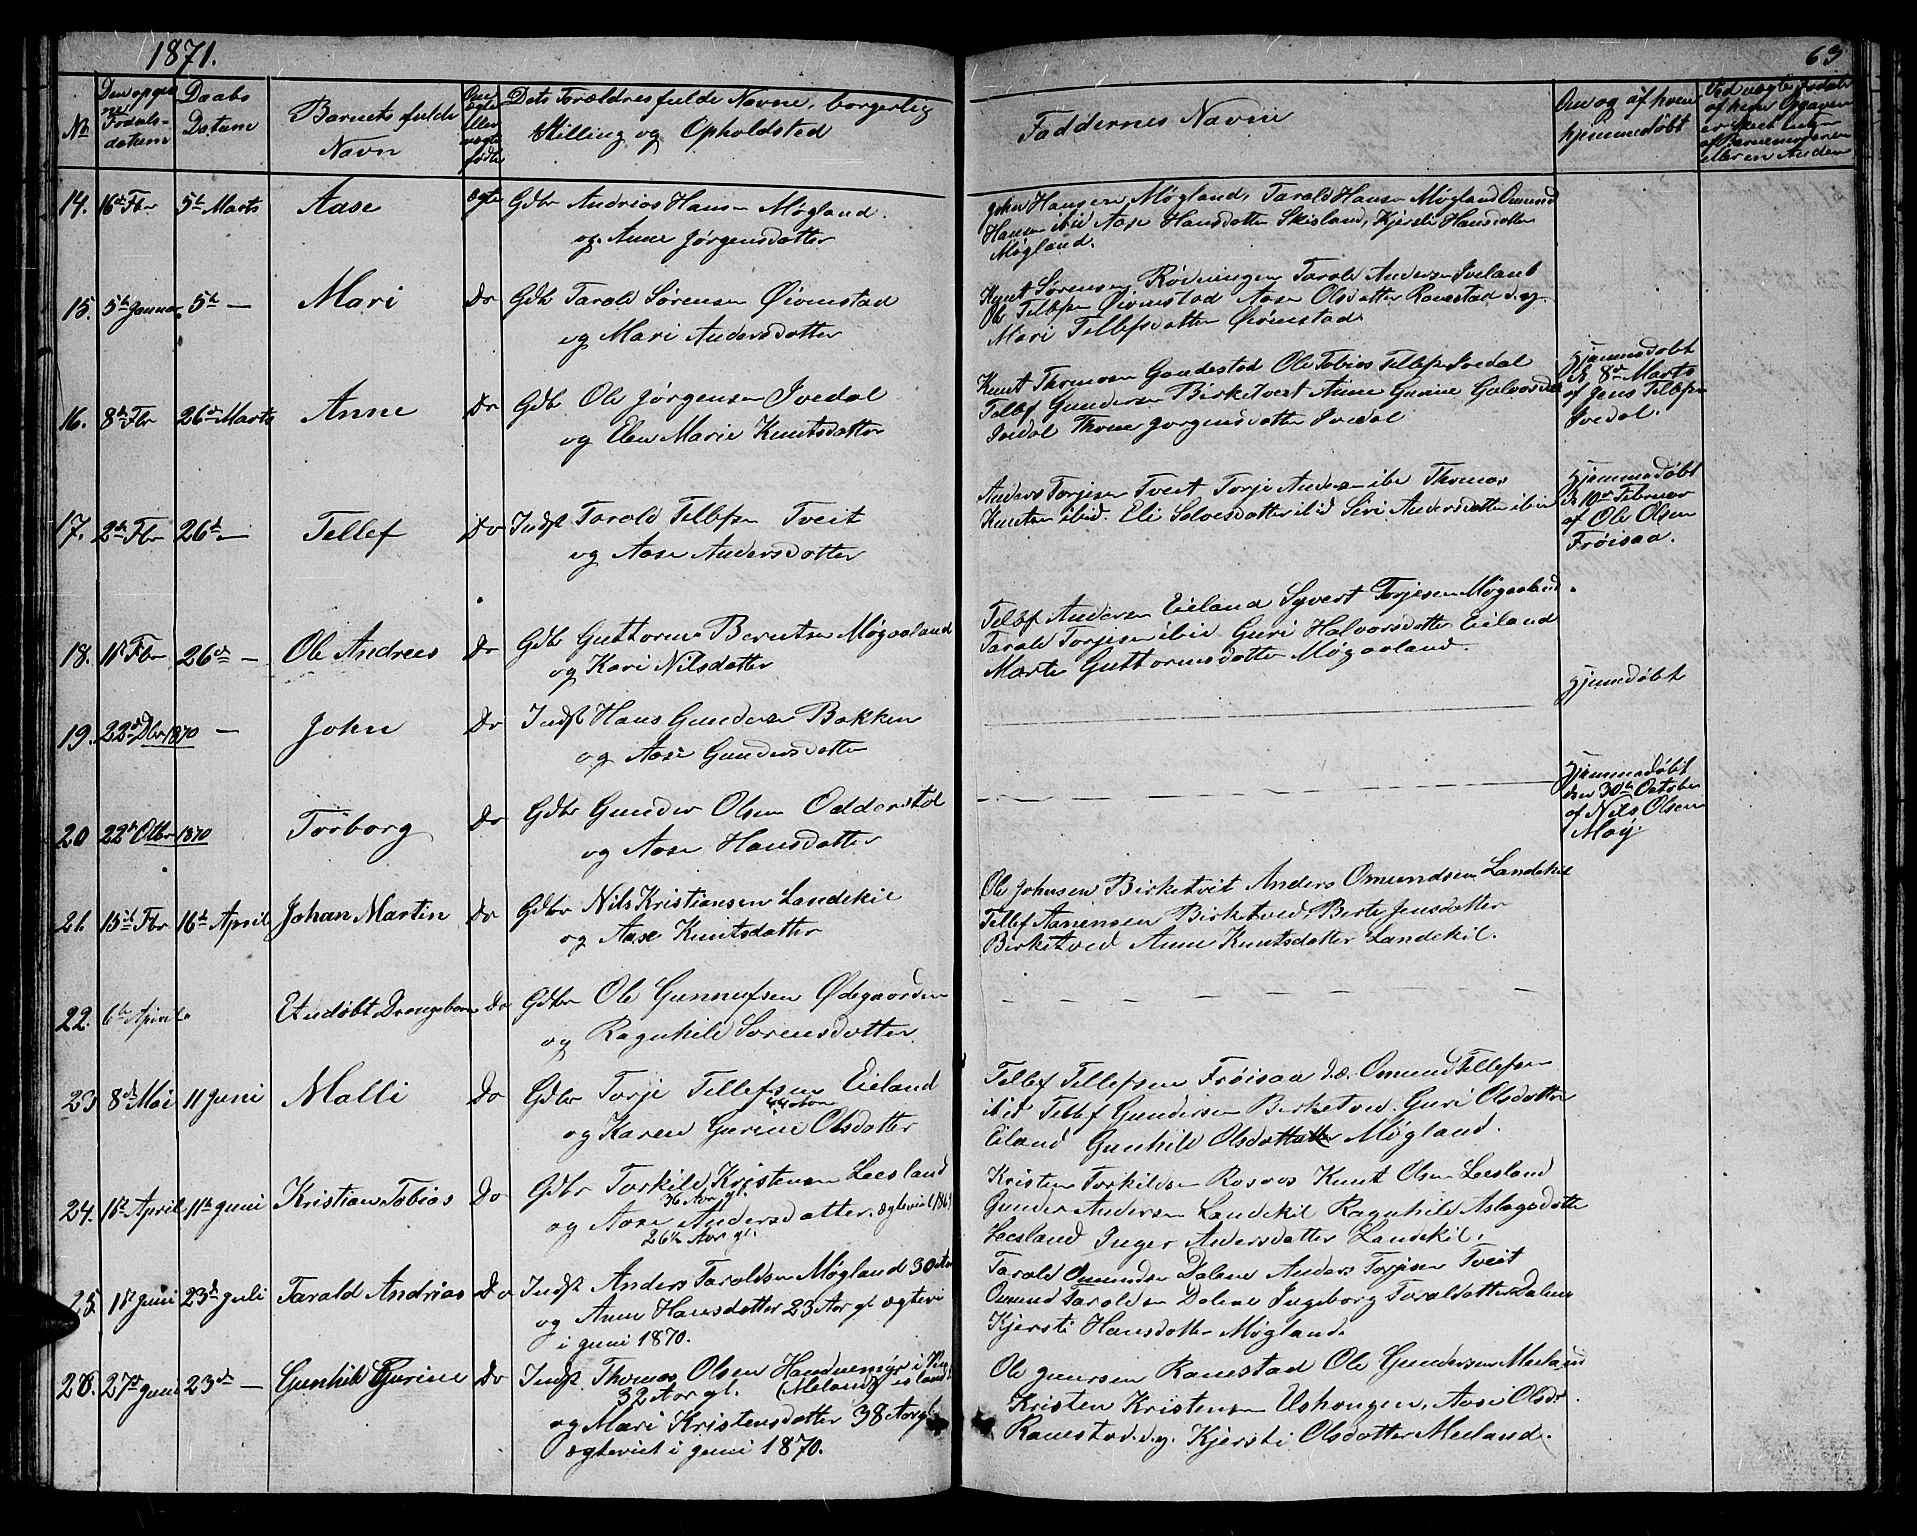 1871.
63
No
Den opgivne Fødselsdatum
Daabs Datum
Barnets fulde Navn
Om ægte eller uægte fødte
Dets Forældres fulde Navne, borgerlig
Stilling og Opholdsted
Faddernes Navne
Om og af hvem hjemmedøbt
14. 16de Fbr 5te Marts Aase ægte Gdbr Andrias Hansen Møgland.
og Anne Jørgensdatter
John Hansen Møgland, Tarald Hansen Møgland Omund
Hansen ibid Aase Hansdatter Skisland, Kjersti Hansdatter
Møgland.
15. 5te Januar 5te — Mari Do Gdbr Tarald Sørensen Øvmstad
og Mari Andersdatter
Knut Sørensen Rødningen Tarald Andersen Iveland
Ole Tellefsen Øvmstad Aase Olsdatter Ranestad d.y.
Mari Tellefsdatter Øvmstad.
16. 8de Fbr 26de Marts Anne Do Gdbr Ole Jørgensen Ivedal
og Elen Marie Knutsdatter
Knut Thomasen Gaadestad Ole Tobias Tellefsen Ivedal
Tellef Gundersen Birketvet Anne Gurine
Ivedal Thone Jørgensdatter Ivedal
Hjemmedøbt
d. 8de Marts
af Jens Tellefsen
Ivedal.
17. 2den Fbr 26de — Tellef Do Indst Tarald Tellefsen Tveit
og Aase Andersdatter
Anders Torjesen Tveit Torje Andersen ibid Thomas
Knutsen ibid. Eli Salvesdatter ibid Siri Andersdatter ibid
Hjemmedøbt
d. 10de Februar
af Ole Olsen
Frøisaa.
18. Fbr 26de — Ole Andreas Do Gdbr Guttorm Berntsen Møgaaland
og Kari Nilsdatter
Tellef Andersen Eieland Syvert Torjesen Møgaaland.
Tarald Torjesen ibid Guri Halvorsdatter Eiland
Marte Guttormsdatter Møgaaland.
19. 22de Dbr 1870 — John Do Indst Hans Gundersen Bakken
og Aase Gundersdatter
Hjemdøbt
20 22de Otbr 1870 Torborg Do Gdbr Gunder Olsen Odderstøl
og Aase Hansdatter
Hjemmedøbt
den 30te October
af Nils Olsen
Moy.
21. 15de Fbr 16de April Johan Martin Do Gdbr Nils Kristiansen Landekil
og Aase Knutsdatter
Ole Johnsen Birketvit Anders Omundsen Landekil
Tellef Aanensen Birketved, Berte Jensdatter
Birketved Anne Knutsdatter Landekil.
22. 6te April Et udøbt Drengebarn Do Gdbr Ole Gunnufsen Ødegaarden
og Ragnhild Sørensdatter.
23 8de Mai 11 Juni Malli Do Gdbr Torje Tellefsen Eieland
og Karen Gurine Olsdatter
Tellef Tellefsen Frøisaa d.æ. Omund Tellefsen
ibid Tellef Gundersen Birketved. Guri Olsdatter
Eiland Gunhild Olsdatter Møgland.
24. April 11te Juni Kristian Tobias Do Gdbr Torkild Kristensen Leesland
36 Aar gl.
og Aase Andersdatter. ægteviet
26½ Aar gl.
Kristen Torkildsen Rosaas Knut Olsen Leesland
Gunder Andersen Landekil Ragnhild Aslagsdatter
Leesland Inger Andersdatter Landekil.
25. 1ste Juni 23de Juli Tarald Andrias Do Indst Anders Taraldsen Møgland 30 Aar
og Anne Hansdatter 23 Aar gl ægtevi
i Juni 1870.
Tarald Omundsen Dalene Anders Torjesen Tveit
Omund Taraldsen Dalene Ingeborg Taraldsdatter Dalene
Kjersti Hansdatter Møgland.
26. 27de Juni 23de — Gunhild Gurine Do Indst. Thomas Olsen
32 Aar gl. (Meland)
og Mari Kristensdatter 38 Aar gl
ægteviet i Juni 1870.
Ole Ranestad Ole Gundersen Meeland
Kristen Kristensen Ushougen, Aase Olsdr
Ranestad d.y. Kjersti Olsdatter Meeland.